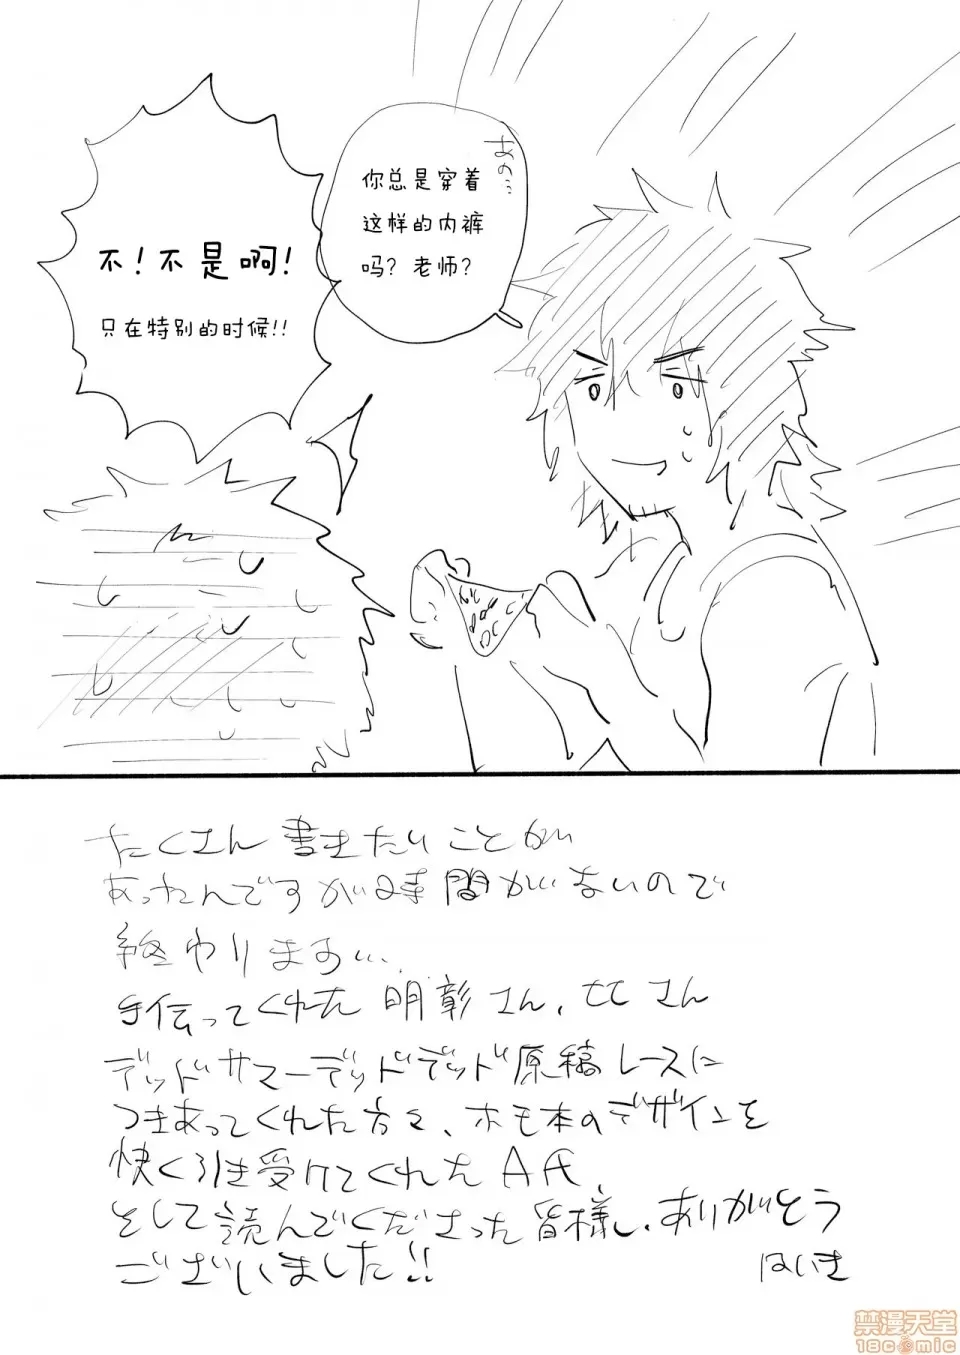 あの…
你总是穿着
这样的内裤
吗？老师？
不！不是啊！
只在特别的时候！！
たくさん書きたいことが
あったんですが時間がないので
終わります…
手伝ってくれた明彰さん、ヒヒさん
デッドサマーデッドデッド原稿レースに
つきあってくれた方々、ホモ本のデザインを
快く引き受けてくれたA氏、
そして読んでくださった皆様し、ありがとう
ございました!!
はいき
禁漫天堂
18comic